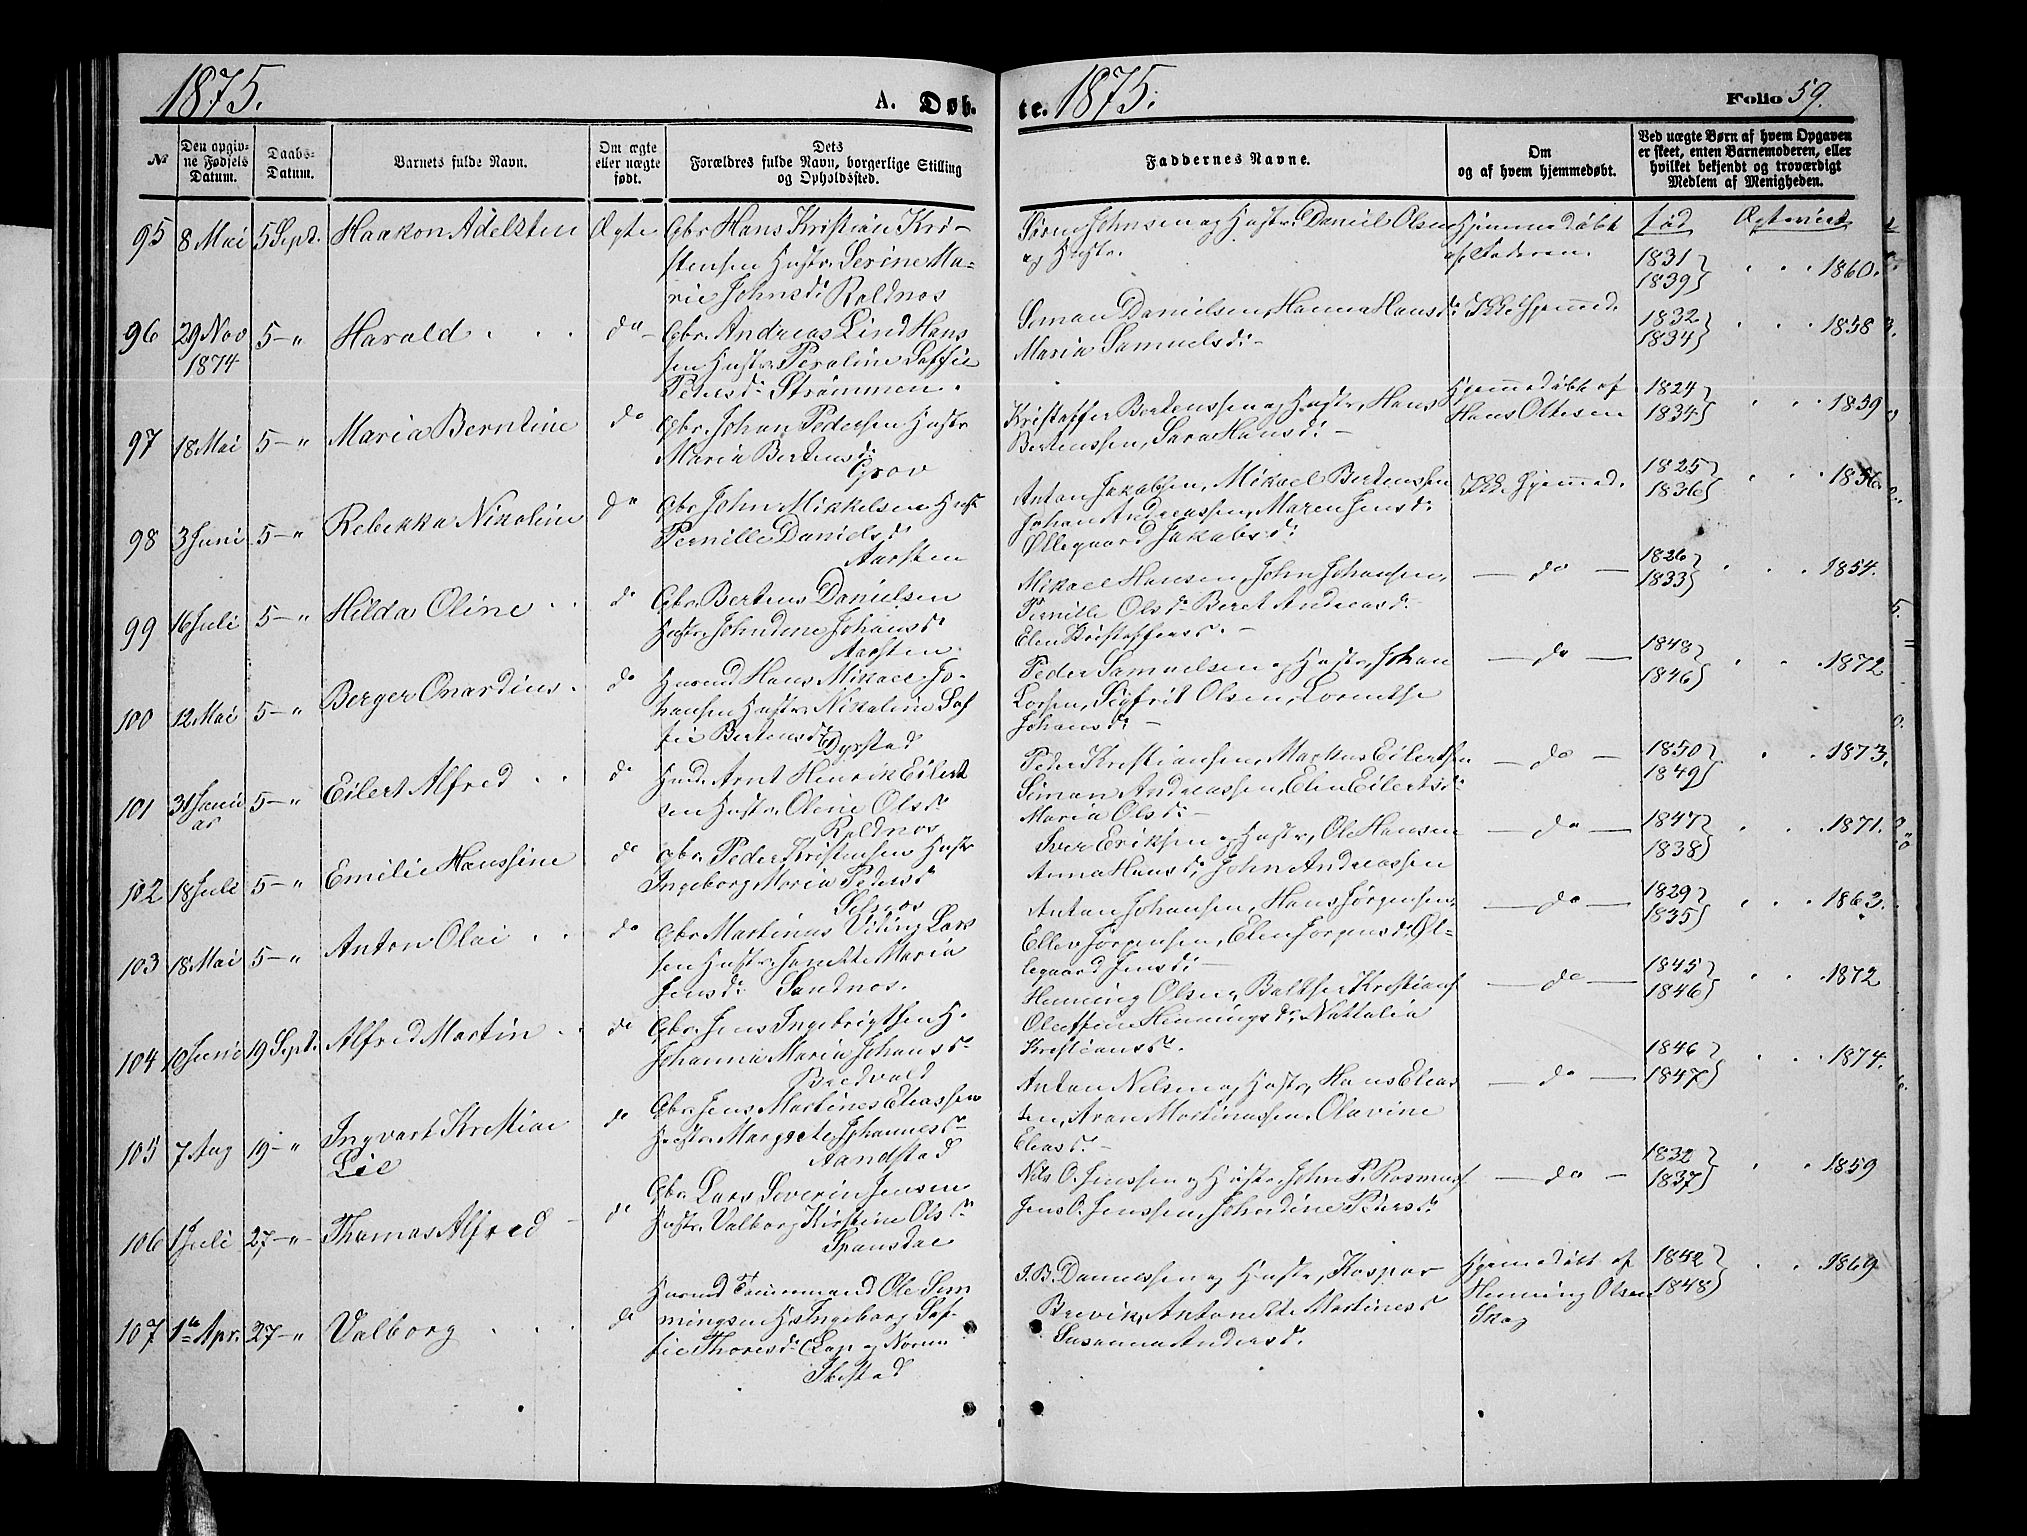 1875.
A. Døb-
te. 1875.
Folio 59.
№
Den opgiv-
ne Fødsels
Datum.
Daabs-
Datum.
Barnets fulde Navn.
Om ægte
eller uægte
født.
Dets
Forældres fulde Navn, borgerlige Stilling
og Opholdssted.
Faddernes Navne.
Om
og af hvem hjemmedøbt.
Ved uægte Børn af hvem Opgaven
er skeet, enten Barnemoderen, eller
hvilket bekjendt og troværdigt
Medlem af Menigheden.
95 8 Mai 5 Sept. Haakon Adelsten Ægte Gbr Hans Kristian Kri-
stensen Hustr. Serine Ma-
rie Johnsd: Roldnes
Sørn Johnsen og Hustr. Daniel Olsen
og Hustr.
Hjemmedøbt
af Faderen.
fød Ægteviet
1831
1839 1860.
96 29 Nov 5 - " Harald do Gbr. Andreas Lind Hans
1874
sen Hustr. Peroline Soffie
Pedersd: Strømmen.
Simon Danielsen, Hanna Hansd:
Maria Samuelsd:
Ikke hjemmed.
1832
1834 1858
97 18 Mai 5 - " Maria Berntine do Gbr. Johan Pedersen Hustr
Maria Bertensd:
Grov
Kristoffer Bertenssen og Hustr, Hans
Bertenssen, Sara Hansd:
Hjemmedøbt af
Hans Ottesen
1824
1834 1859
98 3 Juni 5 - " Rebekka Nikoline do Gbr. John Mikkelsen Hustr
Pernille Danielsd:
Aarsten
Anton Jakobsen, Mikael Bertenssen
Johan Andreassen, Maren Jensd:
Ollegaard Jakobsd:
Ikke hjemmed.
1825
1836 1856.
99 16 Juli 5 - " Hilda Oline do Gbr. Bertens Danielsen
Hustr. Johndine Johansd:
Aarsten.
Mikael Hansen, John Johansen,
Pernille Olsd: Beret Andreasd:
Elen Kristoffersd.
do
1826
1833 1854.
100 12 Mai 5 - " Berger Onardius do Husmd Hans Mikael Jo-
hansen Hustr. Nikoline Sof
fie Bertensd: Dyrstad
Peder Samuelsen og Hustr, Johan
Larsen, Sigfrit Olsen, Lorentse
Johansd:
do
1848
1846 1872
101 31 Janu 5 - " Eilert Alfred do Husmd. Arnt Henrik Eilert
ar
sen Hustr. Oline Olsd:
Roldnes
Peder Kristiansen, Markus Eilertsen
Simon Andreassen, Elen Eilertsd:
Maria Olsd:
do
1850
1849 1873.
102 18 Juli 5 - " Emilie Hanssine do Gbr. Peder Kristensen Hustr
Ingeborg Maria Pedersd:
Selnes
Iver Eriksen og Hustr, Ole Hansen
Anna Hansd, John Andreassen
do
1847
1838 1871.
103 18 Mai 5 - " Anton Olai do Gbr Martinus Viking Lars
sen Hustr. Janette Maria
Jensd: Sandnes.
Anton Johansen, Hans Jørgensen,
Elles Jørgensen, Elen Jørgensd, Øl-
legaard Jensd:
do
1829
1835 1863.
104 10 Juni 19 Sept. Alfred Martin do Gbr. Jens Ingebrigtsen H.
Johanna Maria Johansd:
Bredvold
Henning Olsen, Balthser Kristians
Oleffine Henningsd: Nattalia
Kristiansd:
do
1845
1846 1872
105 7 Aug 19 - " Ingvart Kristian do Gbr. Jens Martines Eliassen
Lie
Hustr. Margrete Johannesd:
Aandstad
Anton Nilsen og Hustr, Hans Elias
sen, Aron Martinussen, Olavine
Eliasd:
do
1846
1847 1874.
106 1 Juli 27 - " Thomas Alfred do Gbr Lars Severin Jensen
Hustr. Valborg Kirstine Olsd:
Spansdal
Nils O. Jenssen og Hustr, John P. Rasmus
Jens O. Jenssen, Johndine Pedersd:
do
1832
1837 1859
107 1te Apr. 27 - " Valborg do Husmd Tømmermand Ole Sem
mingsen H. Ingeborg Sof-
fie Thoresd: Lap og Norm
Ibestad
J. B. Danielssen og Hustr, Kaspar
Brevik, Antonette Martinesd
Susanna Andersd:
Hjemmedøbt af
Henning Olsen
Skog
1842
1848 1869